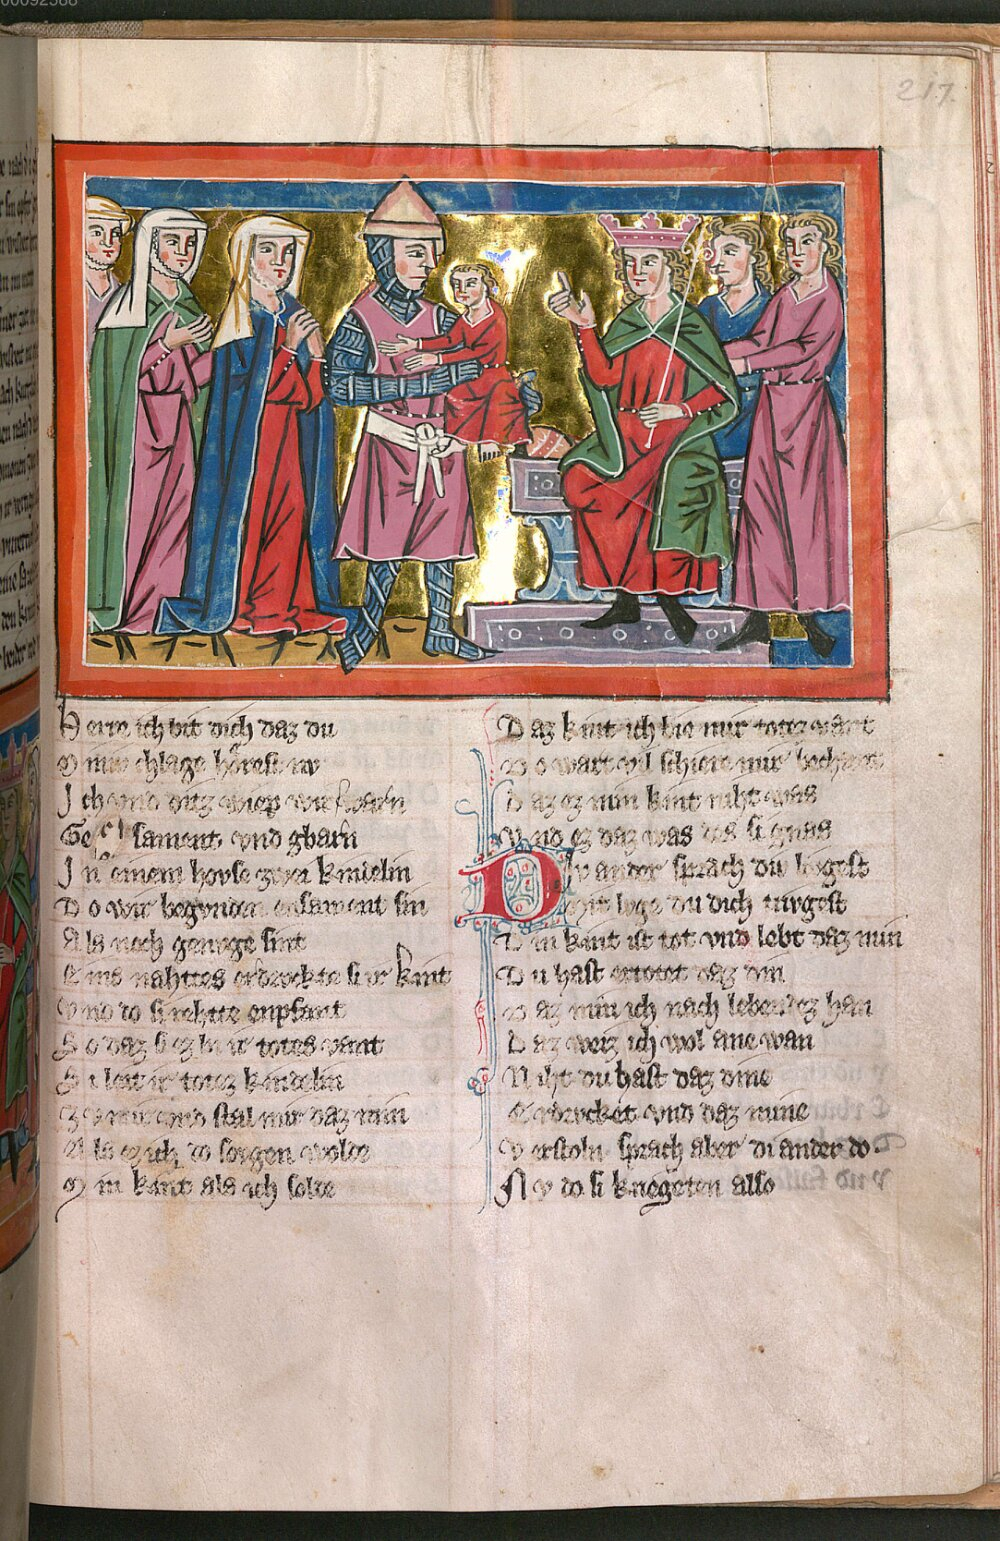 00092588
217
Herre ich bit dich daz du
Min chlage hôrest nv
Ich vnd ditz wiep wir warn
Gesament vnd gbarn
In einem hovse zwei kindelin
Do wir begvnden ensament sin
Als noch genvge sint
Eins nahttes erdrvckte si ir kint
Vnd do si rehtte enpfant
So daz si ez bi ir totes vant
Si leit ir totez kindelin
Zv mir vnd stal mir daz min
Als ez ich do sorgen wolde
Min kint als ich solde
Daz kint ich bie mir totez vant
Do wart vil schiere mir bechant
Daz ez min kint niht was
Vnd ez daz was des si gnas
Div ander sprach du livgest
Mit lvge du dich trivgest
Din kint ist tot vnd lebt daz min
Du hast ertotet daz din
Daz min ich noch lebendez han
Daz weiz ich wol ane wan
Niht du hast daz dine
Erdrvcket vnd daz mine
Verstoln sprach aber di ander do.
Nv do si kriegeten also